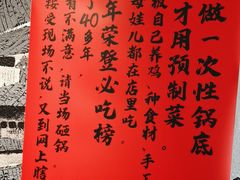 做一次性锅底
才用预制菜
板自己养鸡、种食材、手
母娃儿都在店里吃
年荣登必吃榜
了40多年
有不满意,请当场砸锅
接受现场不说,又到网上瞎